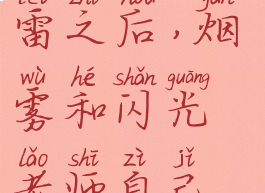 léi zhī hòu yān
雷之后，烟
wù hé shǎn guāng
雾和闪光
lǎo shī zì jǐ
老师自己